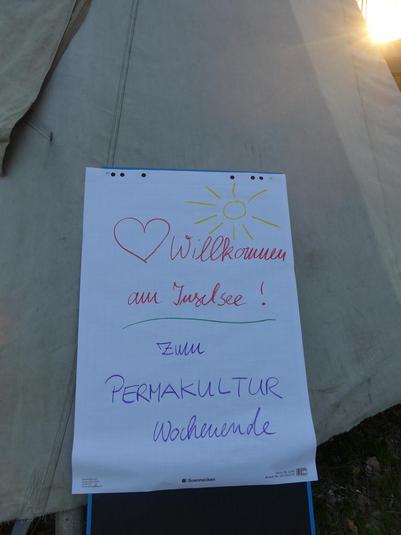 Willkommen
am Inselsee !
zum
PERMAKULTUR
Wochenende
Soennecken